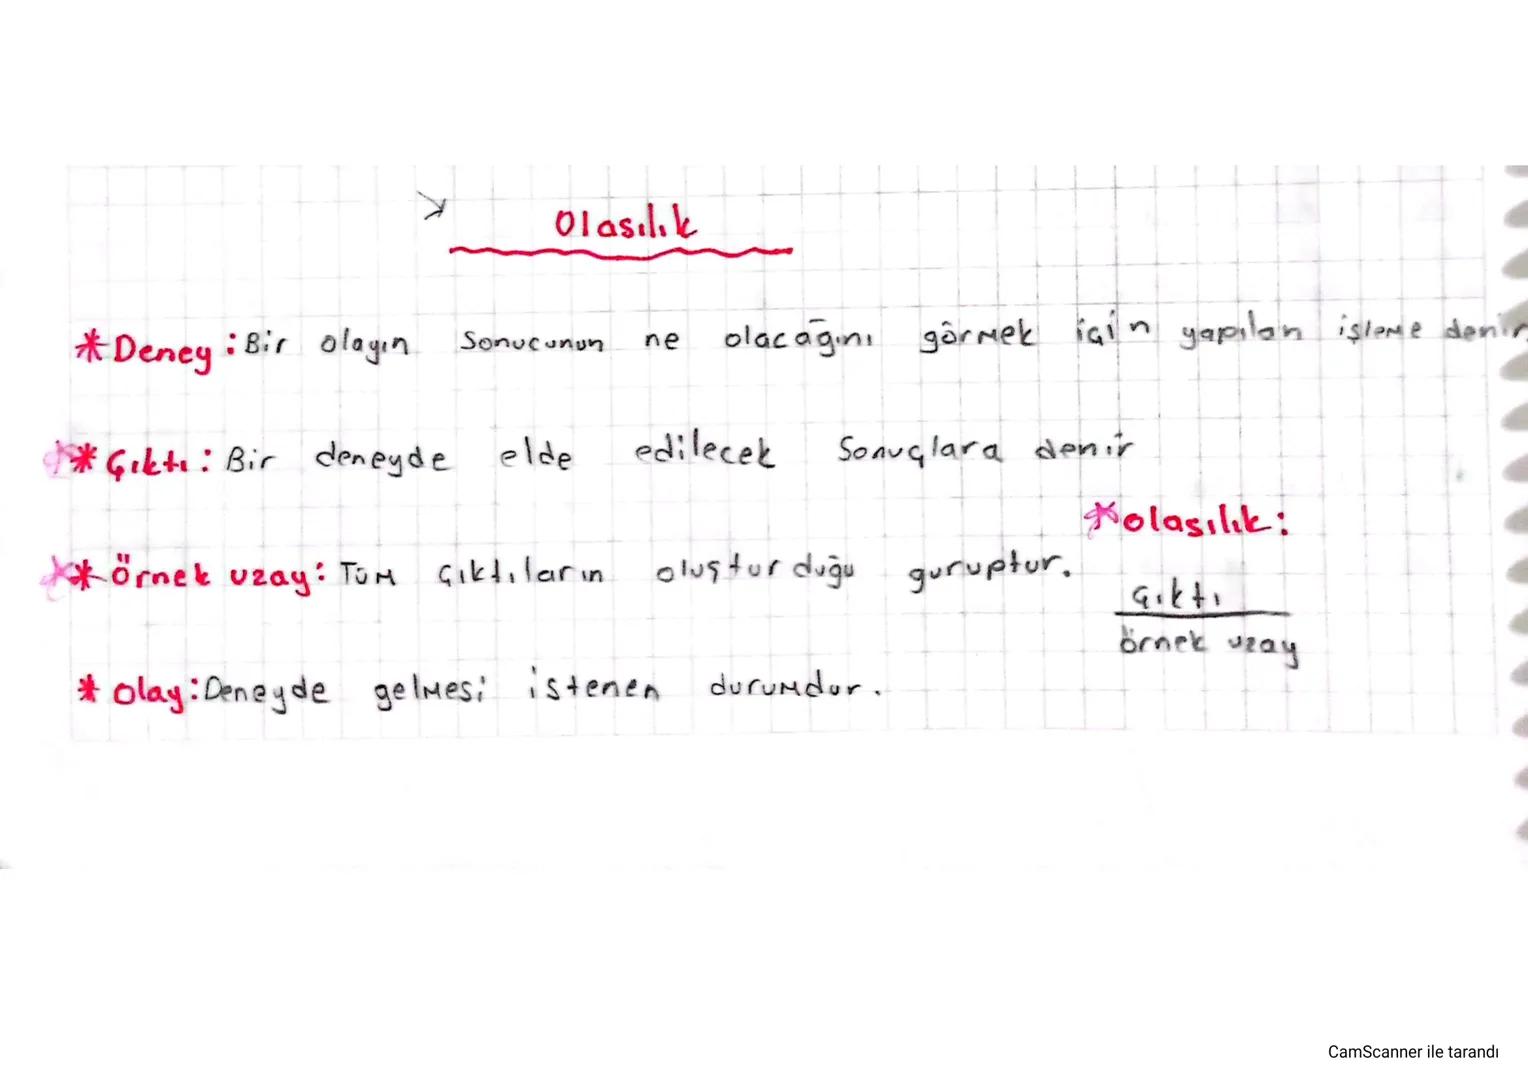 Olasılık
*Deney: Bir olayın sonucunun ne olacağını görmek için yapılan işleme denir.
*Çıktı: Bir deneyde elde edilecek sonuçlara denir
*olasılık:
*Örnek uzay: Tüm çıktıların oluşturduğu guruptur.
çıktı
örnek uzay
*olay: Deneyde gelmesi istenen durumdur.
CamScanner ile tarandı